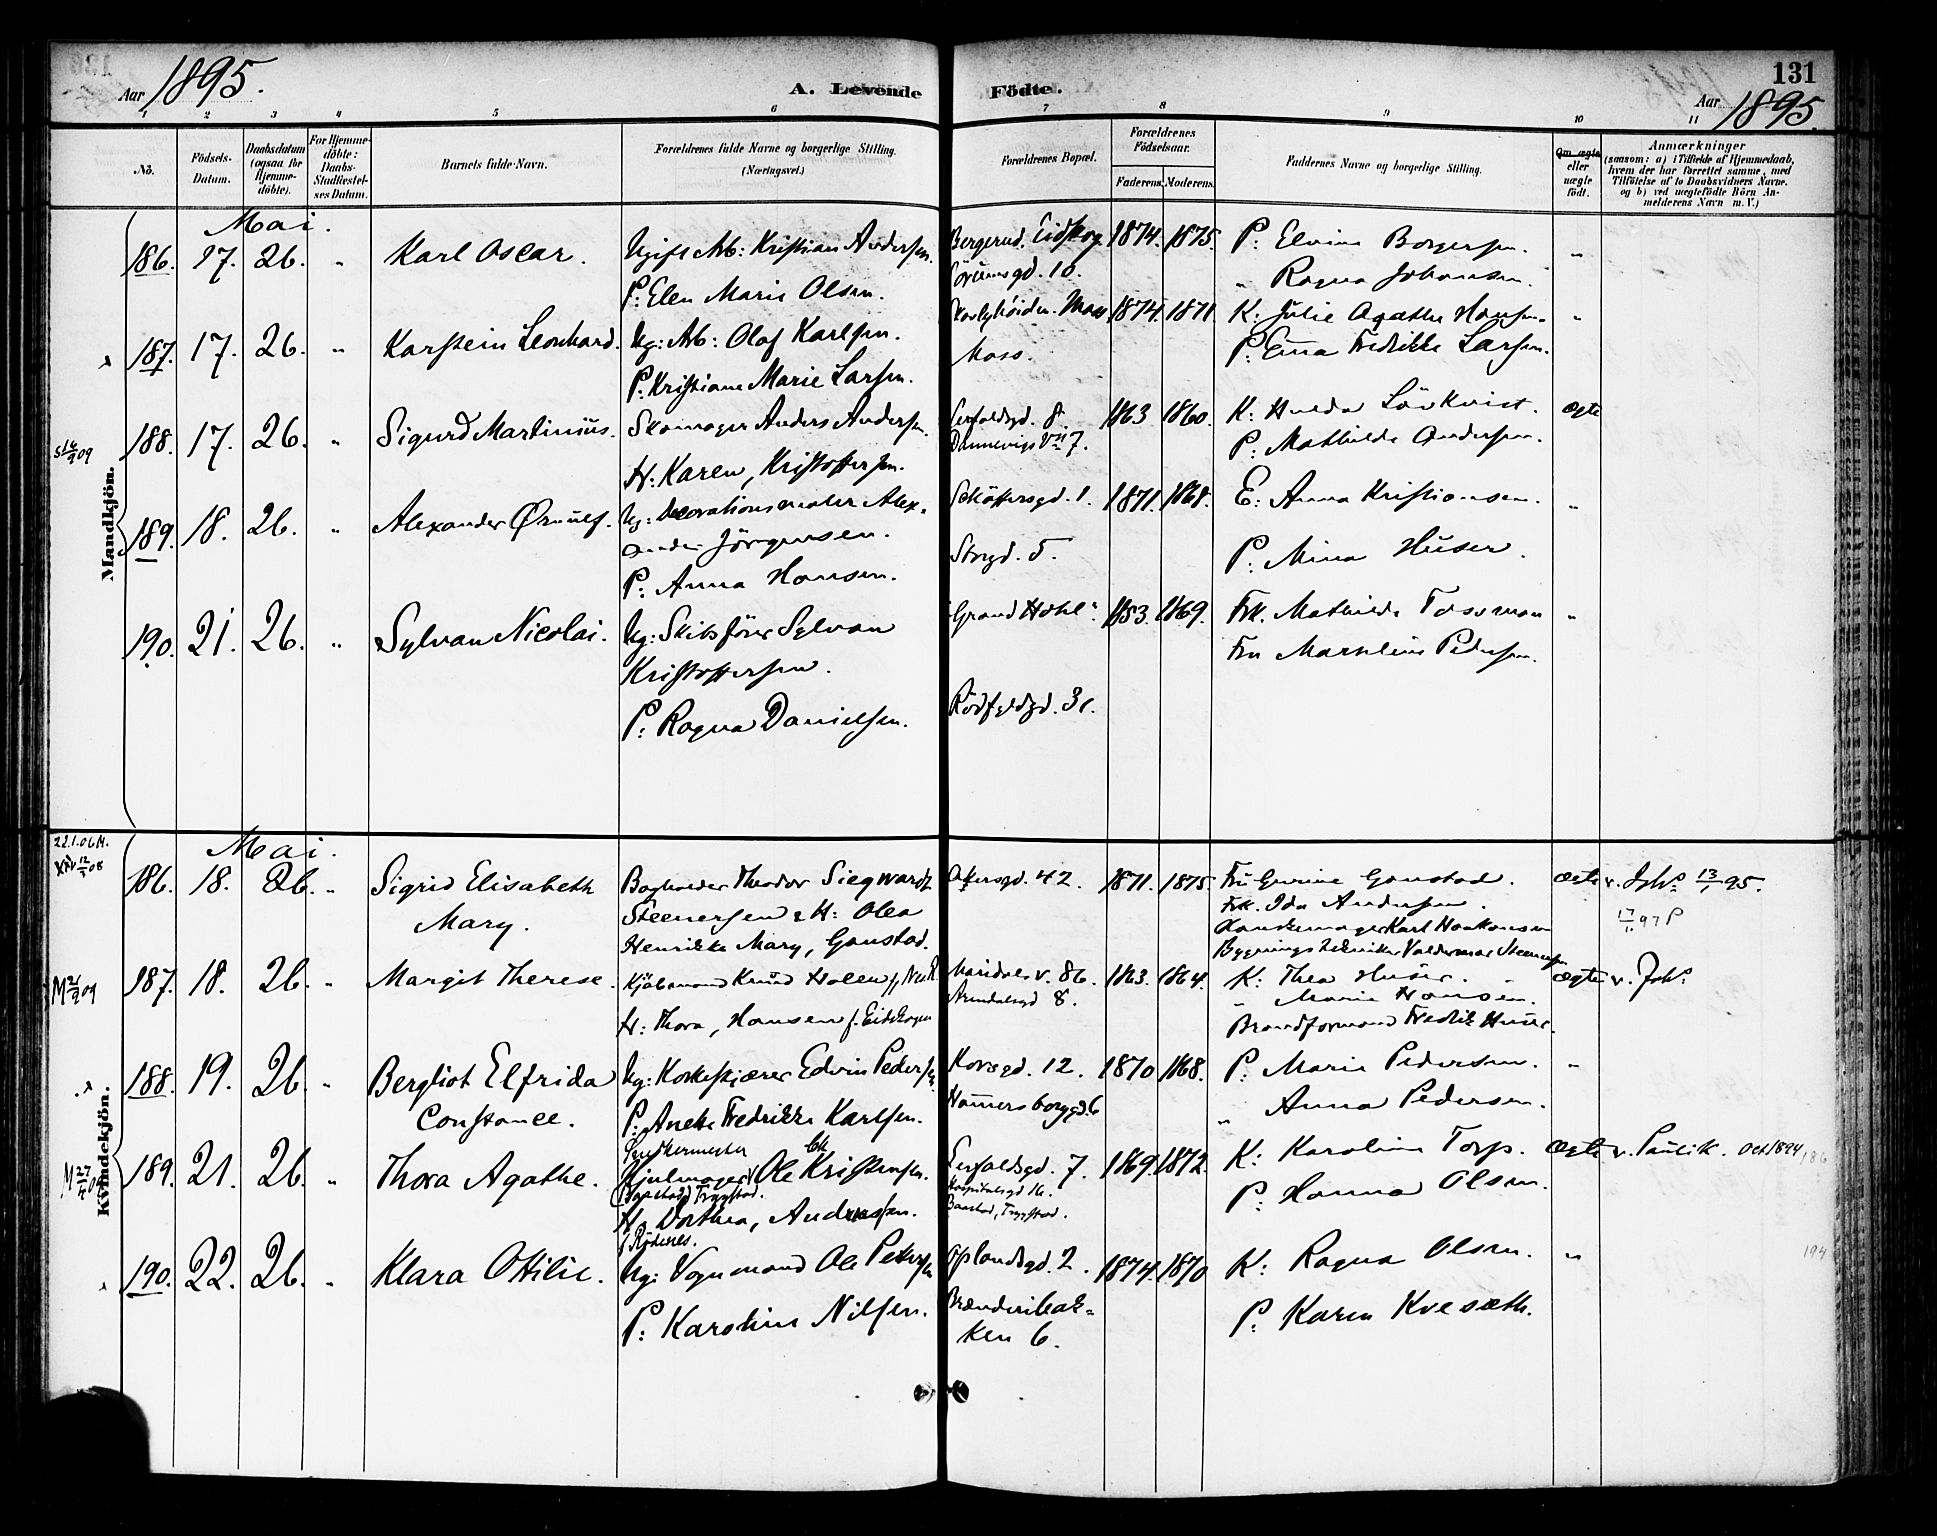 Aar 1895. A. Levende Födte. 131
Aar 1895.
1 2 3 4 5 6 7 8 9 10 11
No. Födsels-Datum. Daabsdatum (ogsaa for Hjemmedöbte). For Hjemmedöbte: Daabs-Stadfæstelses Datum. Barnets fulde Navn. Forældrenes fulde Navne og borgerlige Stilling. (Næringsvei.) Forældrenes Bopæl. Forældrenes Födselsaar. Faderens. Moderens. Faddernes Navne og borgerlige Stilling. Om ægte eller uægte födt. Anmærkninger (saasom: a) i Tilfælde af Hjemmedaab, hvem der har forrettet samme, med Tilföielse af to Daabsvidners Navne. og b) ved uægtefödte Börn Anmelderens Navn m. V.)
Mandkjön.
Mai.
186. 17. 26. " Karl Oscar. Ugift Arb: Kristian Andersen. Bergerud. Eidskog. 1874. 1875. P: Elvine Borgersen. "
P: Elen Marie Olsen. Sörumsgd. 10. " Ragna Johansen.
187. 17. 26. " Karstein Leonhard. Ug: Arb: Olaf Karlsen. Moss 1874. 1871. K: Julie Agathe Hansen. "
P: Kristiane Marie Larsen. Moss. P: Emma Fredrikke Larsen.
188. 17. 26. " Sigurd Martinius. Skomager Anders Andersen. Herfoldsgd. 8. 1863 1860. K: Hulda Lövkvist. ægte
H: Karen, Kristoffersen. Dannevigsvn 7. P: Mathilde Andersen.
189. 18. 26. " Alexander Ørnulf. Ug: Decorationsmaler Alex- Schöftersgd. 1. 1871. 1868. E: Anna Kristiansen. "
ander Jörgensen. Storgd. 5. P: Mina Huser.
P: Anna Hansen.
190. 21. 26. " Sylvan Nicolai. Ug: Skibsförer Sylvan "Grand Hotel" 1853. 1869. Frk. Mathilde Tossman "
Kristoffersen. Fru Marselius Pedersen.
P: Ragna Danielsen. Rödfyldgd. 31.
Kvindekjön.
22.1.06 M.
Mai.
186. 18. 26. " Sigrid Elisabeth Bogholder Theodor Siegwardt Akersgd. 42. 1871. 1875. Fru Gurine Ganstad. ægte v. Joh⁸ 13/1 95.
Mary. Steenersen & H: Olea Frk. Ida Andersen. 17/1 97 P
Henrikke Mary, Ganstad. Hanskemager Karl Haakonsen
Bygningstekniker Valdemar Steenersen
187. 18. 26. " Margit Therese. Kjöbmand Knud Holen Maridalsv. 86. 1863. 1864. K: Thea Huser. ægte v. Joh⁸
H: Thora, Hansen f. Eidskogen Arendalsgd 8. " Marie Hansen.
Brandformand Fredrik Huser.
188. 19. 26. " Bergliot Elfrida Ug: Korkeskjærer Edvin Pedersen. Korsgd. 12. 1870 1868. P: Marie Pedersen. "
Constance. P: Anette Fredrikke Karlsen. Hammersborggd. 6 " Anna Pedersen.
189. 21. 26. " Thora Agathe. Hjulmager Ole Kristensen. Herfoldsgd. 7. 1869. 1872. K: Karoline Torp. ægte v. Paulik. Oct 1894 186
Baastad, Trygstad. Hospitalsgd 16.
H: Dorthea, Andersen. Baastad, Trygstad. P: Hanna Olsen.
f. Rödenes.
190. 22. 26. " Klara Ottilie. Ug: Vognmand Ole Petersen Oplandsgd. 2. 1874. 1870 K: Ragna Olsen. " 194
P: Karoline Nilsen. Brænderibak- P: Karen Kvesæth.
ken 6.